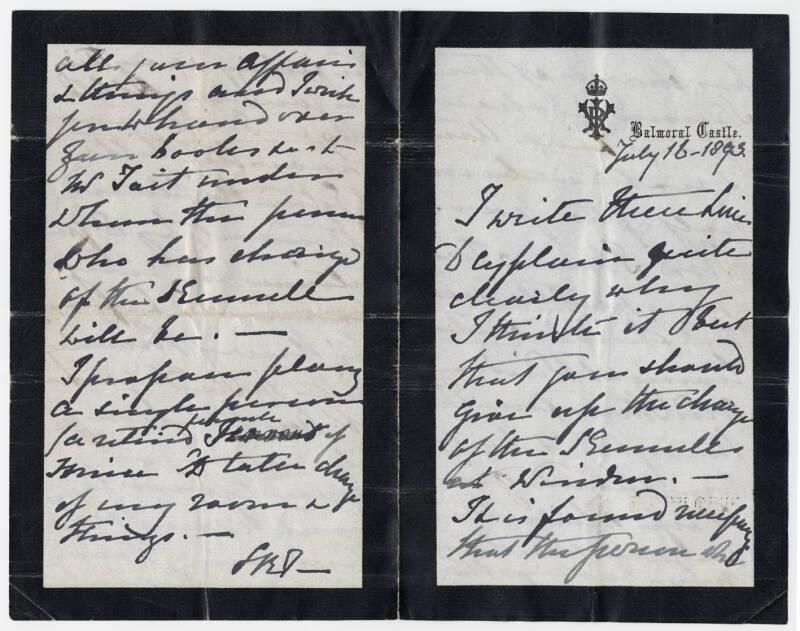 Balmoral Castle.
July 16-1893.
I write these lines
to explain quite
clearly why
I think it best
that you should
give up the charge
of the Kennels
at Windsor. —
It is found necessary
that the person who
all your affairs
& things and I wish
you to hand over
your books to
Mr Tait under
whom the person
who has charge
of the Kennels
will be. —
I propose placing
a single person
(a retired Servant of
mine) to take charge
of my rooms &
things. —
VRI